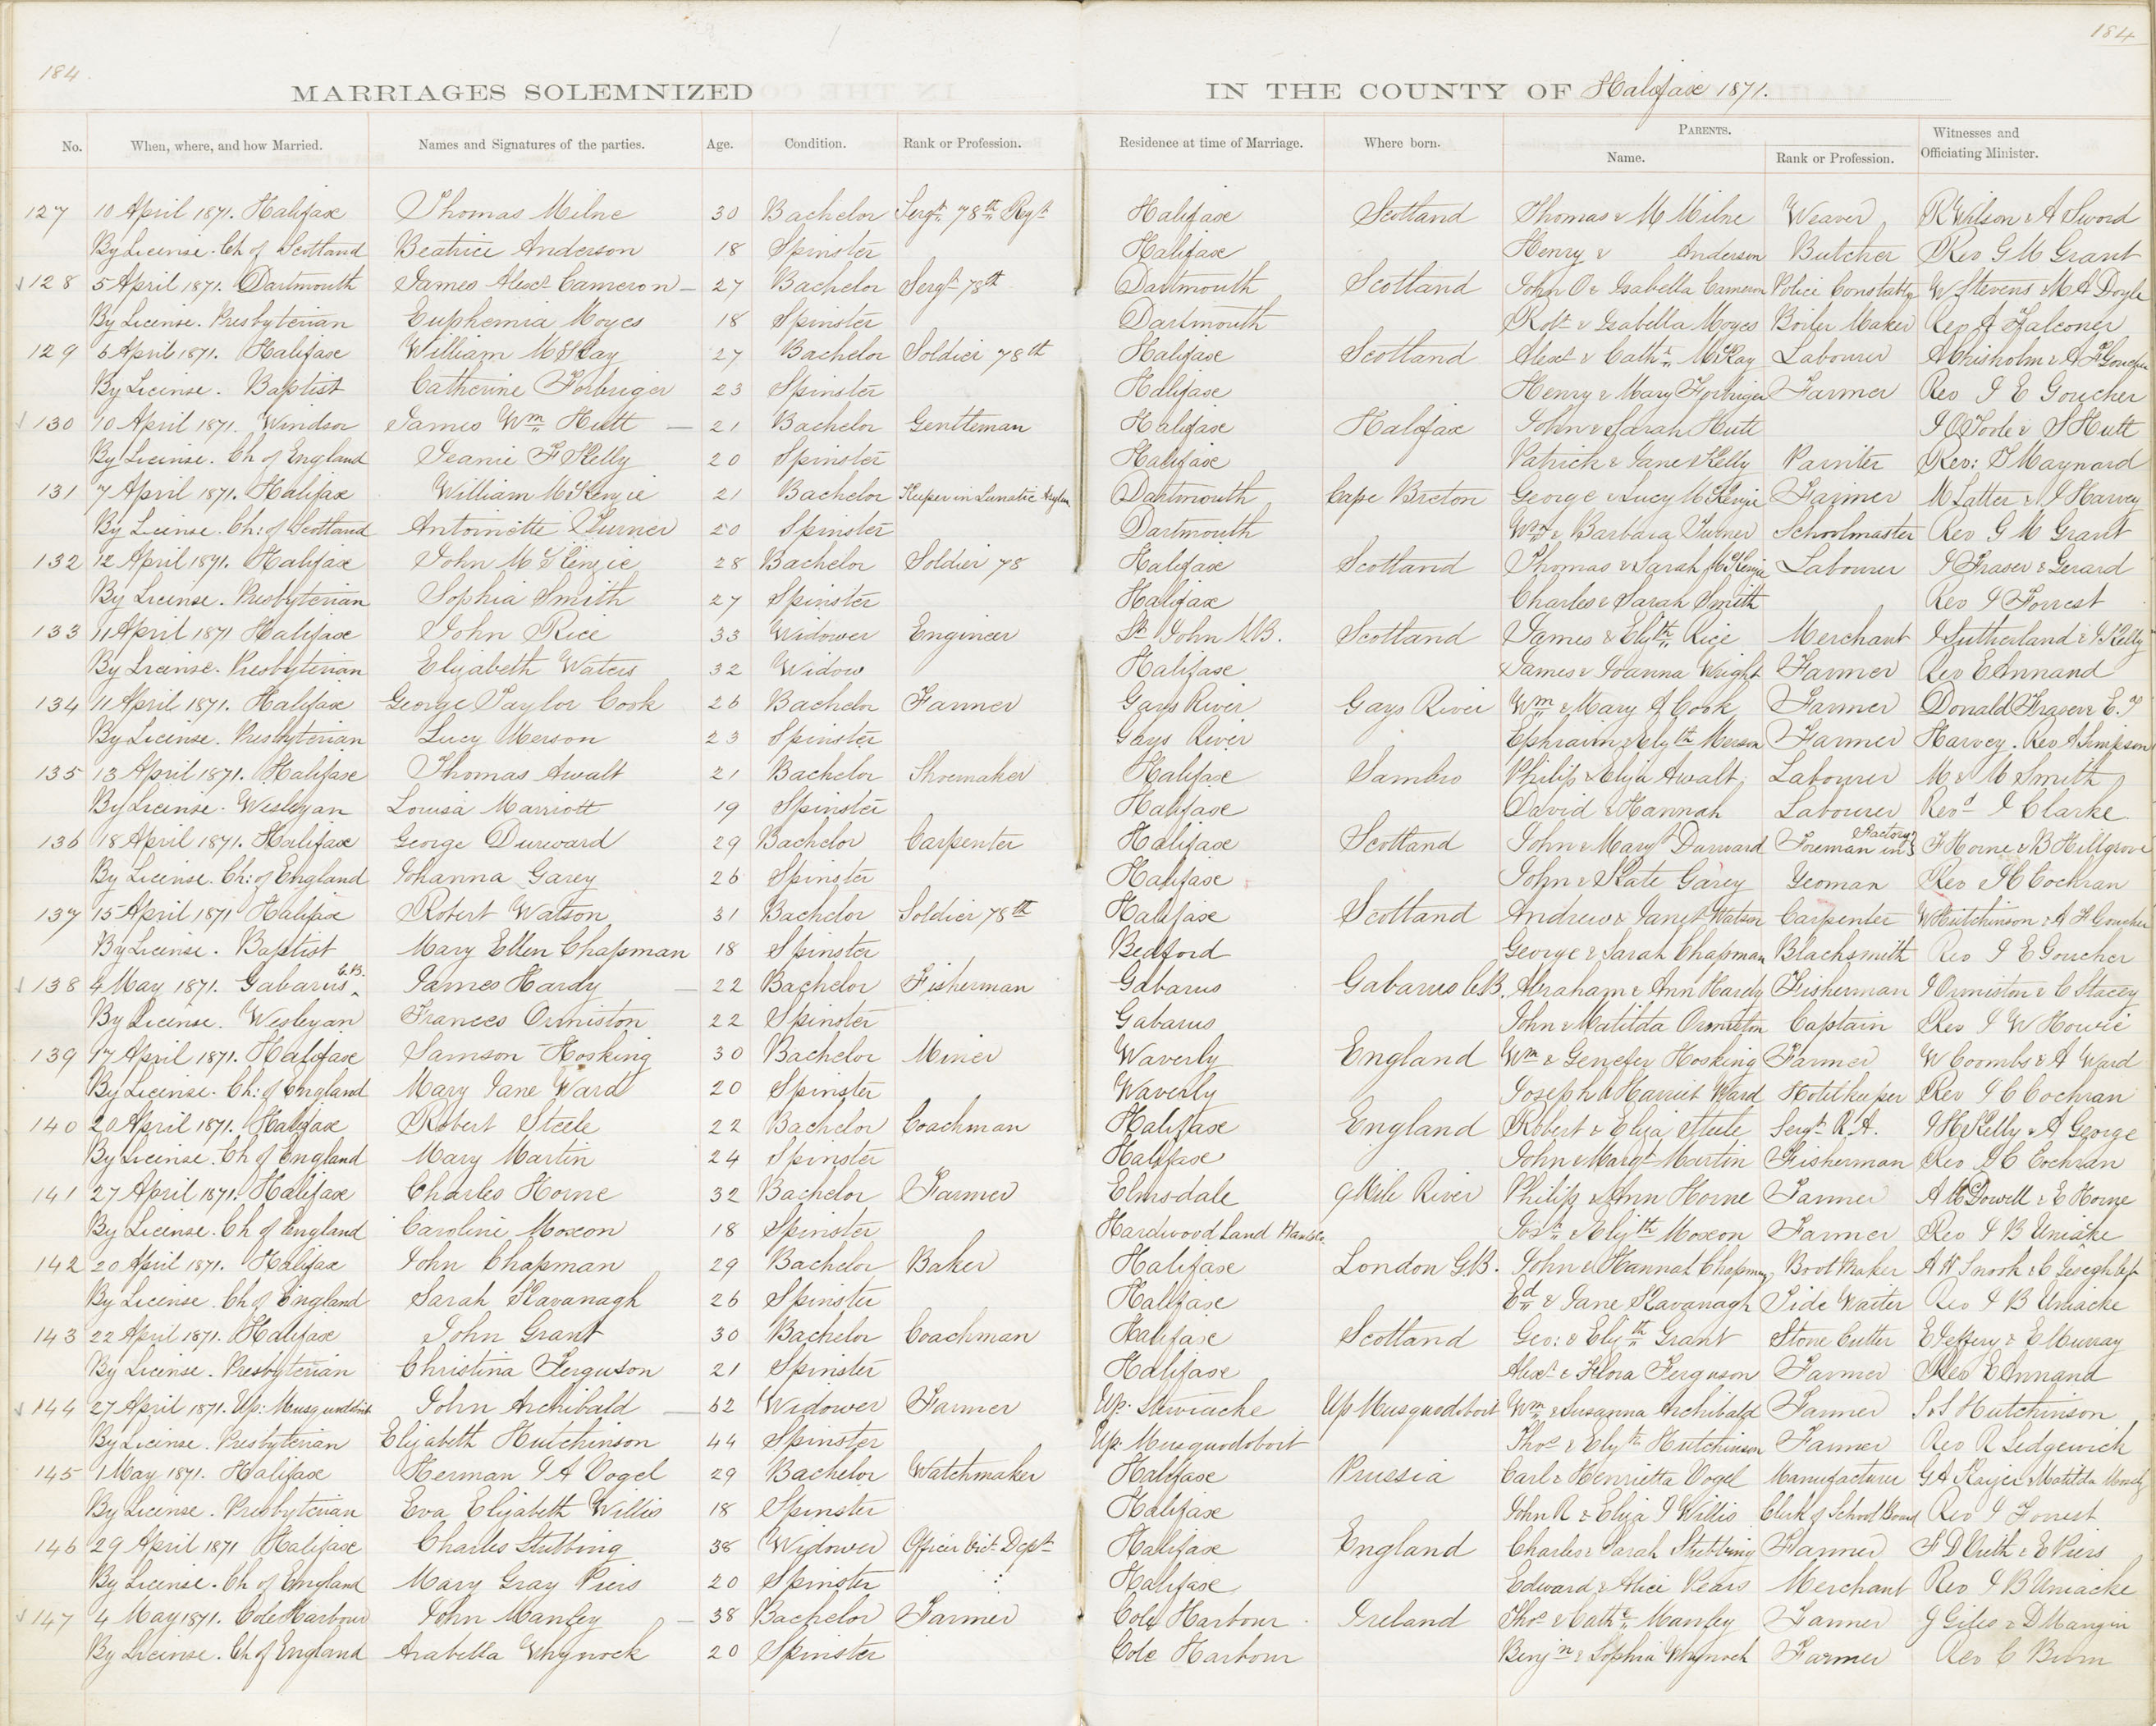 184 184
MARRIAGES SOLEMNIZED IN THE COUNTY OF Halifax 1871.
No. When, where, and how Married. Names and Signatures of the parties. Age. Condition. Rank or Profession. Residence at time of Marriage. Where born. PARENTS. Witnesses and Officiating Minister.
Name. Rank or Profession.
127 10 April 1871. Halifax Thomas Milne 30 Bachelor Sergt. 78th Regt Halifax Scotland Thomas & M Milne Weaver R Wilson & A Sword
By License. Ch of Scotland Beatrice Anderson 18 Spinster Halifax Henry & Anderson Butcher Rev G M Grant
128 5 April 1871. Dartmouth James Alexr Cameron 27 Bachelor Sergt 78th Dartmouth Scotland John O & Isabella Cameron Police Constable W Stevens & M A Doyle
By License. Presbyterian Euphemia Moyes 18 Spinster Dartmouth Robt & Isabella Moyes Boiler Maker Rev A Falconer
129 6 April 1871. Halifax William McKay 27 Bachelor Soldier 78th Halifax Scotland Alexr & Cathn McKay Labourer A Chisholm & A F Goucher
By License. Baptist Catherine Forbriger 23 Spinster Halifax Henry & Mary Forbriger Farmer Rev I E Goucher
130 10 April 1871. Windsor James Wm Hutt 21 Bachelor Gentleman Halifax Halifax John & Sarah Hutt J O'Toole & S Hutt
By License. Ch of England Jeanie F Kelly 20 Spinster Halifax Patrick & Jane Kelly Painter Rev: T Maynard
131 7 April 1871. Halifax William McKenzie 21 Bachelor Keeper in Lunatic Asylum Dartmouth Cape Breton George & Lucy McKenzie Farmer M Latter & J Harvey
By License. Ch: of Scotland Antoinette Turner 20 Spinster Dartmouth Wm & Barbara Turner Schoolmaster Rev G M Grant
132 12 April 1871. Halifax John McKenzie 28 Bachelor Soldier 78 Halifax Scotland Thomas & Sarah McKenzie Labourer J Fraser & Gerard
By License. Presbyterian Sophia Smith 27 Spinster Halifax Charles & Sarah Smith Rev J Forrest
133 11 April 1871 Halifax John Rice 33 Widower Engineer St John N.B. Scotland James & Elizth Rice Merchant J Sutherland & J Kelly
By License. Presbyterian Elizabeth Waters 32 Widow Halifax James & Joanna Wright Farmer Rev E Annand
134 11 April 1871. Halifax George Taylor Cook 26 Bachelor Farmer Gays River Gays River Wm & Mary A Cook Farmer Donald Fraser & E. J
By License. Presbyterian Lucy Merson 23 Spinster Gays River Ephraim & Elizth Merson Farmer Harvey. Rev A Simpson
135 13 April 1871. Halifax Thomas Awalt 21 Bachelor Shoemaker Halifax Sambro Philip & Eliza Awalt Labourer M & M Smith
By License. Wesleyan Louisa Marriott 19 Spinster Halifax David & Hannah Labourer Revd J Clarke
136 18 April 1871. Halifax George Dureward 29 Bachelor Carpenter Halifax Scotland John & Mary Durward Foreman in Factory F Horne & B Hillgrove
By License. Ch: of England Johanna Garey 26 Spinster Halifax John & Kate Garey Yeoman Rev J C Cochran
137 15 April 1871 Halifax Robert Watson 31 Bachelor Soldier 78th Halifax Scotland Andrew & Janet Watson Carpenter W Hutchinson & A F Goucher
By License. Baptist Mary Ellen Chapman 18 Spinster Bedford George & Sarah Chapman Blacksmith Rev I E Goucher
138 4 May 1871. Gabarus C.B. James Hardy 22 Bachelor Fisherman Gabarus Gabarus C.B. Abraham & Ann Hardy Fisherman J Ormiston & C Stacey
By License. Wesleyan Frances Ormiston 22 Spinster Gabarus John & Matilda Ormiston Captain Rev J W Howie
139 17 April 1871. Halifax Samson Hosking 30 Bachelor Miner Waverly England Wm & Genefer Hosking Farmer W Coombs & A Ward
By License. Ch: of England Mary Jane Ward 20 Spinster Waverly Joseph & Harriet Ward Hotelkeeper Rev J C Cochran
140 20 April 1871. Halifax Robert Steele 22 Bachelor Coachman Halifax England Robert & Eliza Steele Sergt R.A. J H Kelly & A George
By License. Ch of England Mary Martin 24 Spinster Halifax John & Margt Martin Fisherman Rev J C Cochran
141 27 April 1871. Halifax Charles Horne 32 Bachelor Farmer Elmsdale 9 Mile River Philip & Ann Horne Farmer A McDowell & E Horne
By License. Ch of England Caroline Moxon 18 Spinster Hardwood Land Hants Co. Josh & Elizth Moxon Farmer Rev J B Uniake
142 20 April 1871. Halifax John Chapman 29 Bachelor Baker Halifax London G.B. John & Hannah Chapman Boot Maker A W Snook & C
By License. Ch of England Sarah Kavanagh 26 Spinster Halifax Ed & Jane Kavanagh Tide Waiter Rev J B Uniacke
143 22 April 1871. Halifax John Grant 30 Bachelor Coachman Halifax Scotland Geo: & Elizth Grant Stone Cutter E Jeffery & E Murray
By License. Presbyterian Christina Ferguson 21 Spinster Halifax Alexr & Flora Ferguson Farmer Rev E Annand
144 27 April 1871. Up: Musquodoboit John Archibald 62 Widower Farmer Up. Stewiacke Up Musquodoboit Wm & Susanna Archibald Farmer S & S Hutchinson
By License. Presbyterian Elizabeth Hutchinson 44 Spinster Up. Musquodoboit Thos & Elizth Hutchinson Farmer Rev R Sedgewick
145 1 May 1871. Halifax Herman J A Vogel 29 Bachelor Watchmaker Halifax Prussia Carl & Henrietta Vogel Manufacturer G A Kaizer & Matilda
By License. Presbyterian Eva Elizabeth Willis 18 Spinster Halifax John R & Eliza J Willis Clerk of School Board Rev J Forrest
146 29 April 1871 Halifax Charles Stubbing 38 Widower Officer Vict Dept Halifax England Charles & Sarah Stubbing Farmer F D Crith & E Piers
By License. Ch of England Mary Gray Piers 20 Spinster Halifax Edward & Alice Pears Merchant Rev J B Uniacke
147 4 May 1871. Cole Harbour John Manley 38 Bachelor Farmer Cole Harbour Ireland Thos & Cathe Manley Farmer J Giles & D Mangin
By License. Ch of England Arabella Whynock 20 Spinster Cole Harbour Benjn & Sophia Whynock Farmer Rev C Bum